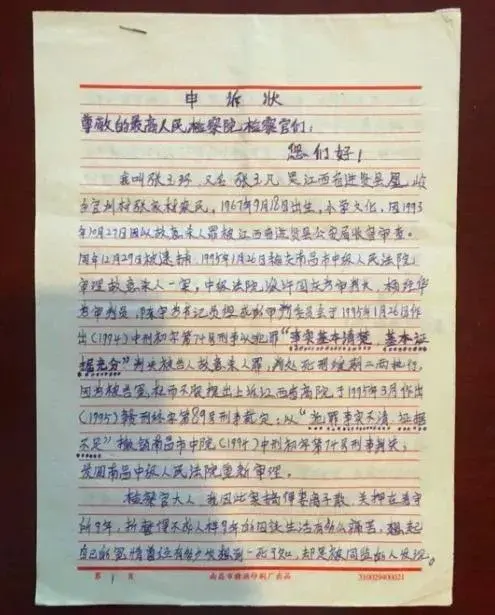 申诉状
尊敬的最高人民检察院检察官们:
您们好!
我叫张玉环、又名张玉凡 是江西省进贤县凰岭
乡官圳村张家村农民,1967年9月18日出生,小学文化,因1993
年10月27日因以故意杀人罪被江西省进贤县公安局收容审查。
同年12月29日被逮捕,1995年1月26日南昌市中级人民法院
审理故意杀人一案,中级法院
为审判员,书记员组成1995年1月26日作
出(1994)中刑初字第74号刑事以犯罪“事实基本清楚,基本证
据充分”判决被告人故意杀人罪,判处死刑缓期二两执行,
因为被告冤枉而不服提出上诉江西省高院于1995年3月作出
(1995)赣刑终字第89号刑事裁定:以“犯罪事实不清,证据
不足”撤销南昌市中院(1994)中刑初字第74号刑事判决;
发回南昌中级人民法院重新审理。
检察官大人,我因此案搞得妻离子散,关押在看守
所9年,折磨得不成人样9年的囚徒生活有多么痛苦,想起
自己的冤情曾经有多少次想到一死了知,却是被同监的人发现。
第 1 页
南昌市赣浜印刷厂出品
310029400021